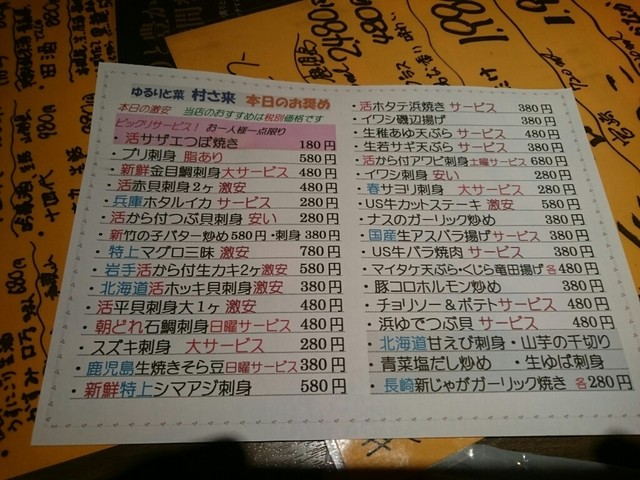 ゆるりと菜 村さ来 本日のお奨め
本日の激安 当店のおすすめは税別価格です
ビックリサービス! お一人様一点限り
・活サザエつぼ焼き 180円
・ブリ刺身 脂あり 580円
・新鮮金目鯛刺身大サービス 480円
・活赤貝刺身2ヶ激安 480円
・兵庫ホタルイカ サービス 280円
・活から付つぶ貝刺身 安い 280円
・新竹の子バター炒め580円・刺身380円
・特上マグロ三昧 激安 780円
・岩手活から付生カキ2ケ激安 580円
・北海道活ホッキ貝刺身激安 380円
・活平貝刺身大1ヶ激安 480円
・朝どれ石鯛刺身日曜サービス 480円
・スズキ刺身 大サービス 280円
・鹿児島生焼きそら豆日曜サービス380円
・新鮮特上シマアジ刺身 580円
・活ホタテ浜焼き サービス 380円
・イワシ磯辺揚げ 380円
・生稚あゆ天ぷら サービス 480円
・生若サギ天ぷら サービス 380円
・活から付アワビ刺身土曜サービス 680円
・イワシ刺身 安い 280円
・春サヨリ刺身 大サービス 280円
・US牛カットステーキ 激安 580円
・ナスのガーリック炒め 380円
・国産生アスパラ揚げサービス 380円
・US牛バラ焼肉 サービス 380円
・マイタケ天ぷら・くじら竜田揚げ各480円
・豚コロホルモン炒め 380円
・チョリソー&ポテトサービス 480円
・浜ゆでつぶ貝 サービス 480円
・北海道甘えび刺身・山芋の千切り
・青菜塩だし炒め ・生ゆば刺身
・長崎新じゃがガーリック焼き 各280円